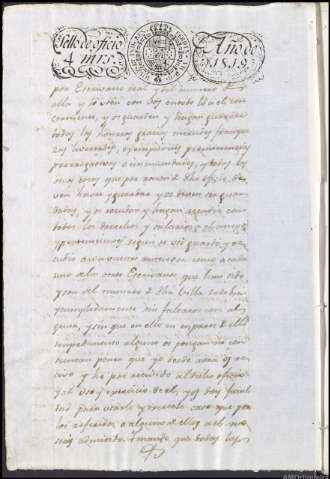 Sello de oficio
4 mrs.
Año de
1819.
por Escrivano Real y del numero de
ella y lo usen con Vos en todo lo a el con-
cerniente, y os guarden y hagan guardar
todas las honras, gracias, mercedes, franque-
zas, livertades, exempciones, preeminencias
prerrogativas e inmunidades, y todas las
mas cosas que por razon de dho oficio de-
veis haver y gozar y os deven ser guar-
dadas, y os recudan y hagan recudir con
todos los derechos y salarios a el anexos
y pertenecientes segun se usó guardó y re-
cudió a vuestros antecesores como a cada
uno de los otros Escrivanos que han sido
y son del numero de dha Villa todo bien
y cumplidamente sin faltaros cosa al-
guna, y que en ello ni en parte de ello
impedimento alguno os pongan ni con-
sientan poner que yo desde ahora os re-
civo y he por recivido al dicho oficio
y al uso y exercicio de el, y os doy facul-
tad para usarle y exercerle caso que por
los referidos o alguno de ellos a el no
seais admitido. Y mando que todas las